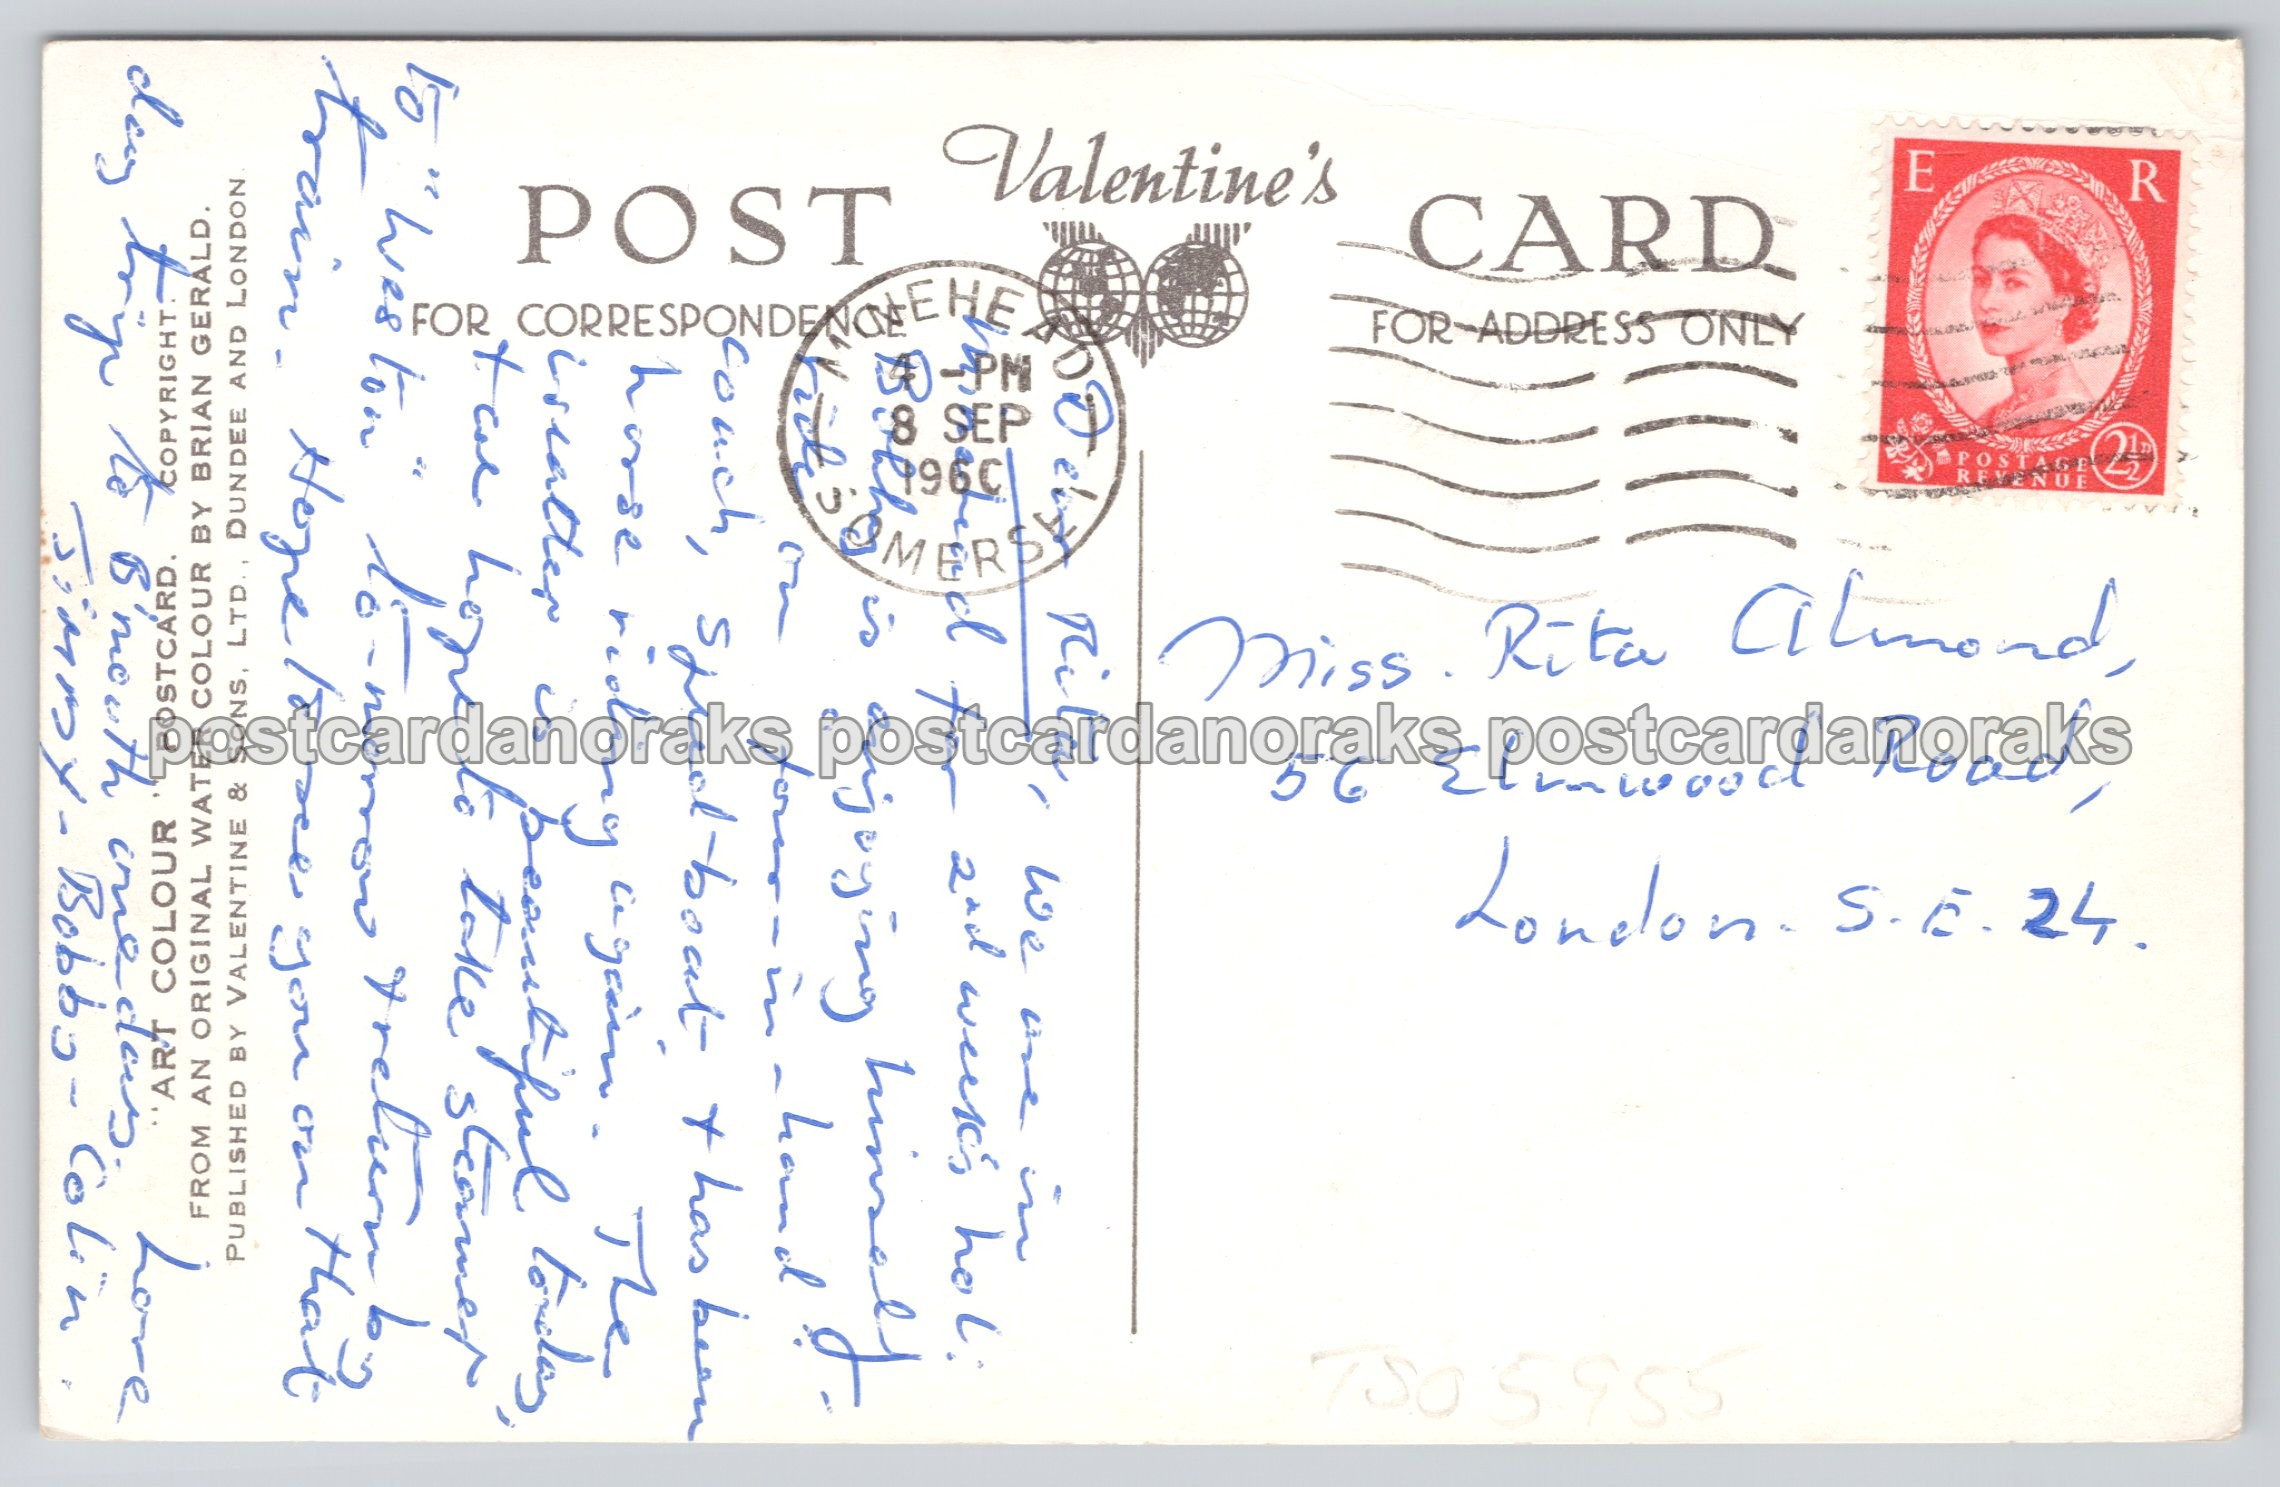 POST Valentine's CARD
FOR CORRESPONDENCE FOR ADDRESS ONLY
MINEHEAD
4 - PM
8 SEP
1960
SOMERSET
E R
POSTAGE
REVENUE
2½D
Dear Rita, We are in
Minehead for 2nd week's hol:
Bobby is enjoying himself
riding on a four-in-hand
coach, speed-boat & has been
horse riding again. The
weather is beautiful today,
& we hope to take steamer
to "Weston" to-morrow & return by
train. Hope to see you on that
day trip to B'mouth one day.
Love
Jimmy - Bobby - Colin.
Miss. Rita Almond,
56 Elmwood Road,
London. S.E. 24.
"ART COLOUR" POSTCARD. COPYRIGHT.
FROM AN ORIGINAL WATER COLOUR BY BRIAN GERALD.
PUBLISHED BY VALENTINE & SONS, LTD., DUNDEE AND LONDON.
postcardanoraks postcardanoraks postcardanoraks
TS05955